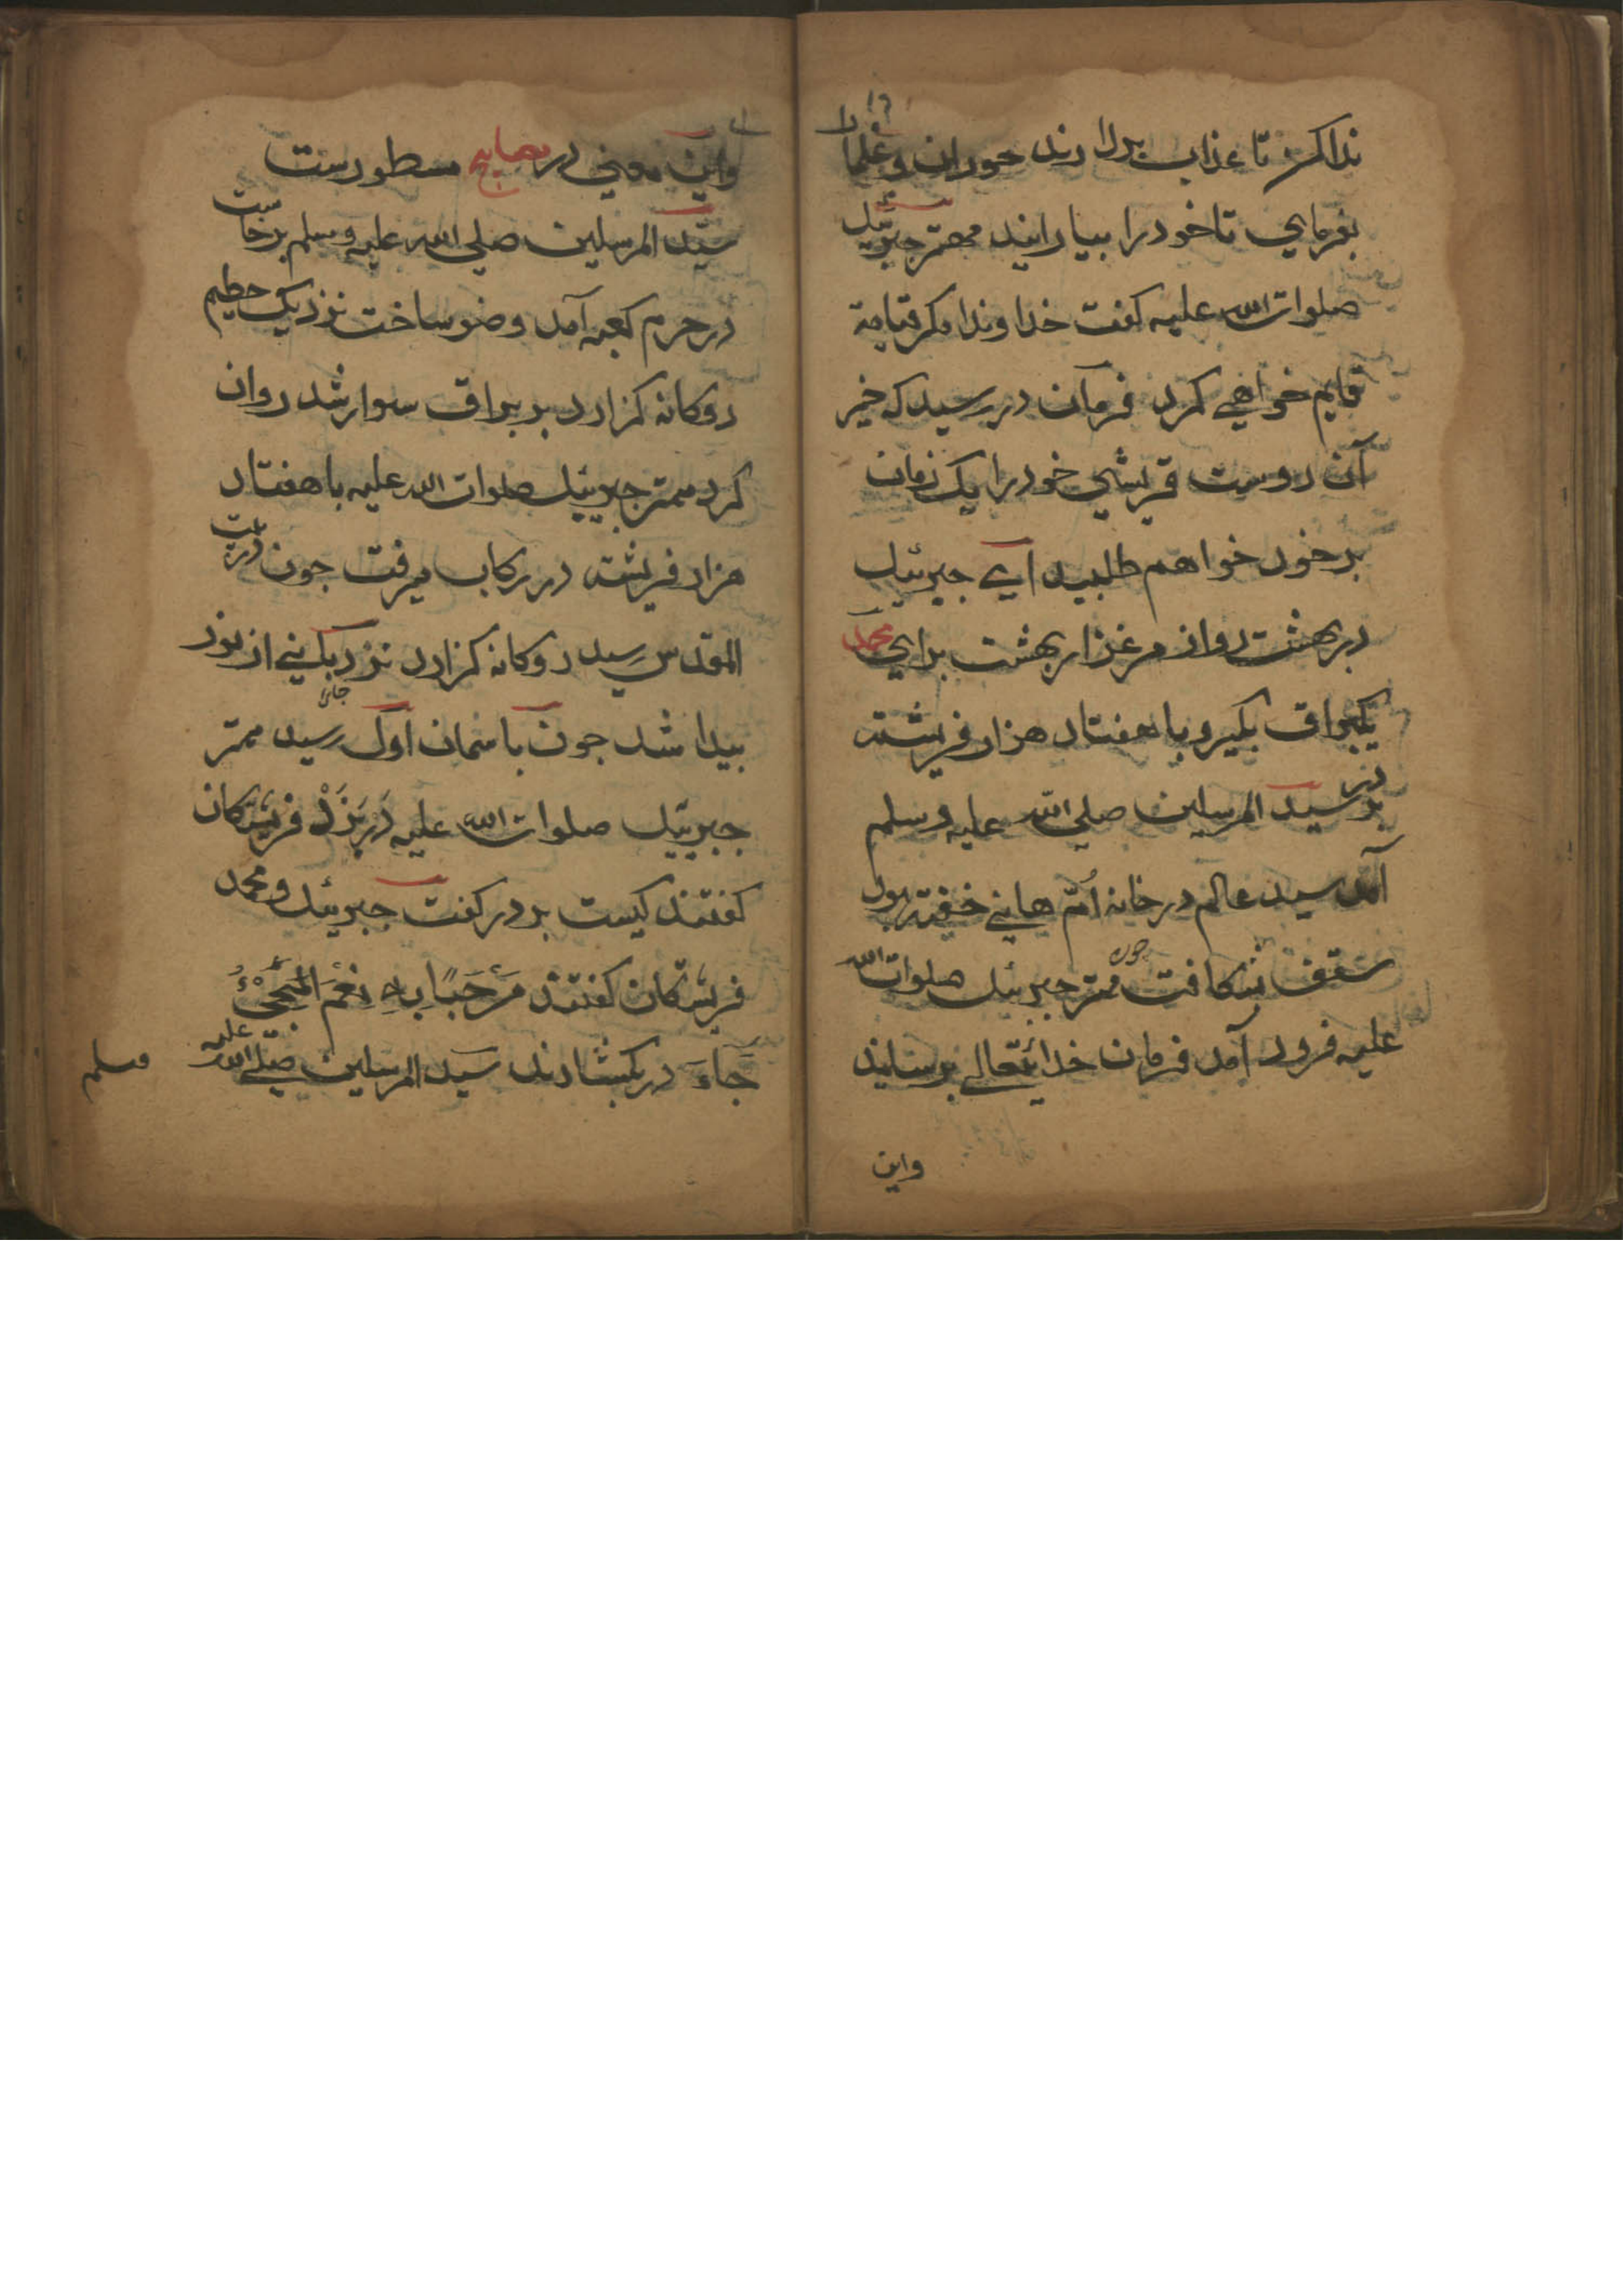 ندا کن تا عذاب بدارند حوران و غلمان را
بفرماي تا خود را بیارانید مهتر جبرئیل
صلوات الله علیه کفت خداوندا مکر قیامة
قایم خواهي کرد فرمان در رسید که خیر
آن دوست قریشي خود را یک زمان
بر خود خواهم طلبید اي جبرئیل
در بهشت رو از مرغزار بهشت براي محمد
یک براق بکیر و با هفتاد هزار فریشته
نزد سید المرسلین صلي الله علیه وسلم
آمد سید عالم در خانه ام هاني خفته بود
سقف بشکافت چون مهتر جبرئیل صلوات الله
علیه فرود آمد فرمان خدايتعالي برسانید
واین
واین معني در مصابیح مسطورست
سید المرسلین صلي الله علیه وسلم برخاست
در حرم کعبه آمد وضو ساخت نزدیک حطیم
دوکانه کزارد بر براق سوار شد روان
کرد مهتر جبرئیل صلوات الله علیه با هفتاد
هزار فریشته در رکاب میرفت جون در بیت
المقدس رسید دوکانه کزارد نزدیک نیي از نور
بیدا شد جون باسمان اول رسید مهتر
جبرئیل صلوات الله علیه در بزد فریشتکان
کفتند کیست بر در کفت جبرئیل و محمد
فریشتکان کفتند مَرْحَبًا بِهِ نِعْمَ الْمَجِيْءُ
جَاءَ در بکشادند سید المرسلین صلي الله علیه وسلم